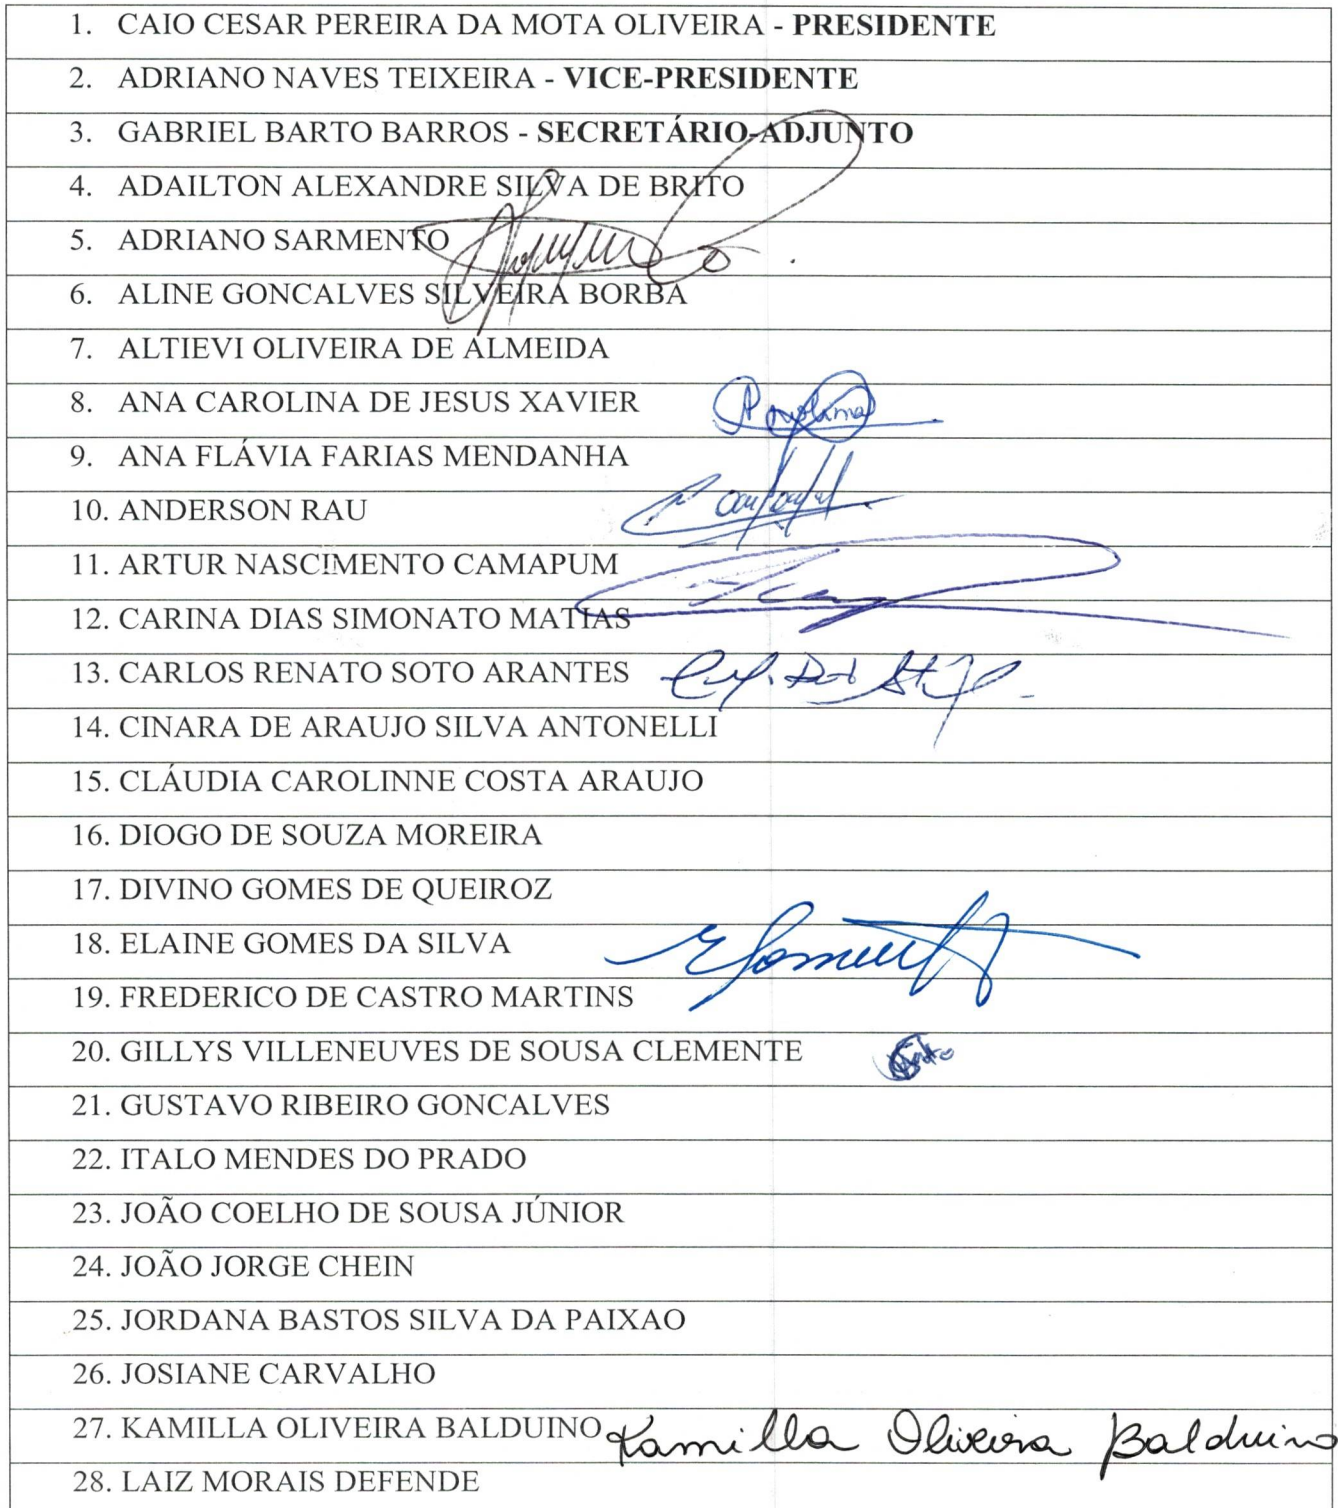 1. CAIO CESAR PEREIRA DA MOTA OLIVEIRA - PRESIDENTE
2. ADRIANO NAVES TEIXEIRA - VICE-PRESIDENTE
3. GABRIEL BARTO BARROS - SECRETÁRIO-ADJUNTO
4. ADAILTON ALEXANDRE SILVA DE BRITO
5. ADRIANO SARMENTO
6. ALINE GONCALVES SILVEIRA BORBA
7. ALTIEVI OLIVEIRA DE ALMEIDA
8. ANA CAROLINA DE JESUS XAVIER
9. ANA FLÁVIA FARIAS MENDANHA
10. ANDERSON RAU
11. ARTUR NASCIMENTO CAMAPUM
12. CARINA DIAS SIMONATO MATIAS
13. CARLOS RENATO SOTO ARANTES
14. CINARA DE ARAUJO SILVA ANTONELLI
15. CLÁUDIA CAROLINNE COSTA ARAUJO
16. DIOGO DE SOUZA MOREIRA
17. DIVINO GOMES DE QUEIROZ
18. ELAINE GOMES DA SILVA
19. FREDERICO DE CASTRO MARTINS
20. GILLYS VILLENEUVES DE SOUSA CLEMENTE
21. GUSTAVO RIBEIRO GONCALVES
22. ITALO MENDES DO PRADO
23. JOÃO COELHO DE SOUSA JÚNIOR
24. JOÃO JORGE CHEIN
25. JORDANA BASTOS SILVA DA PAIXAO
26. JOSIANE CARVALHO
27. KAMILLA OLIVEIRA BALDUINO Kamilla Oliveira Balduino
28. LAIZ MORAIS DEFENDE